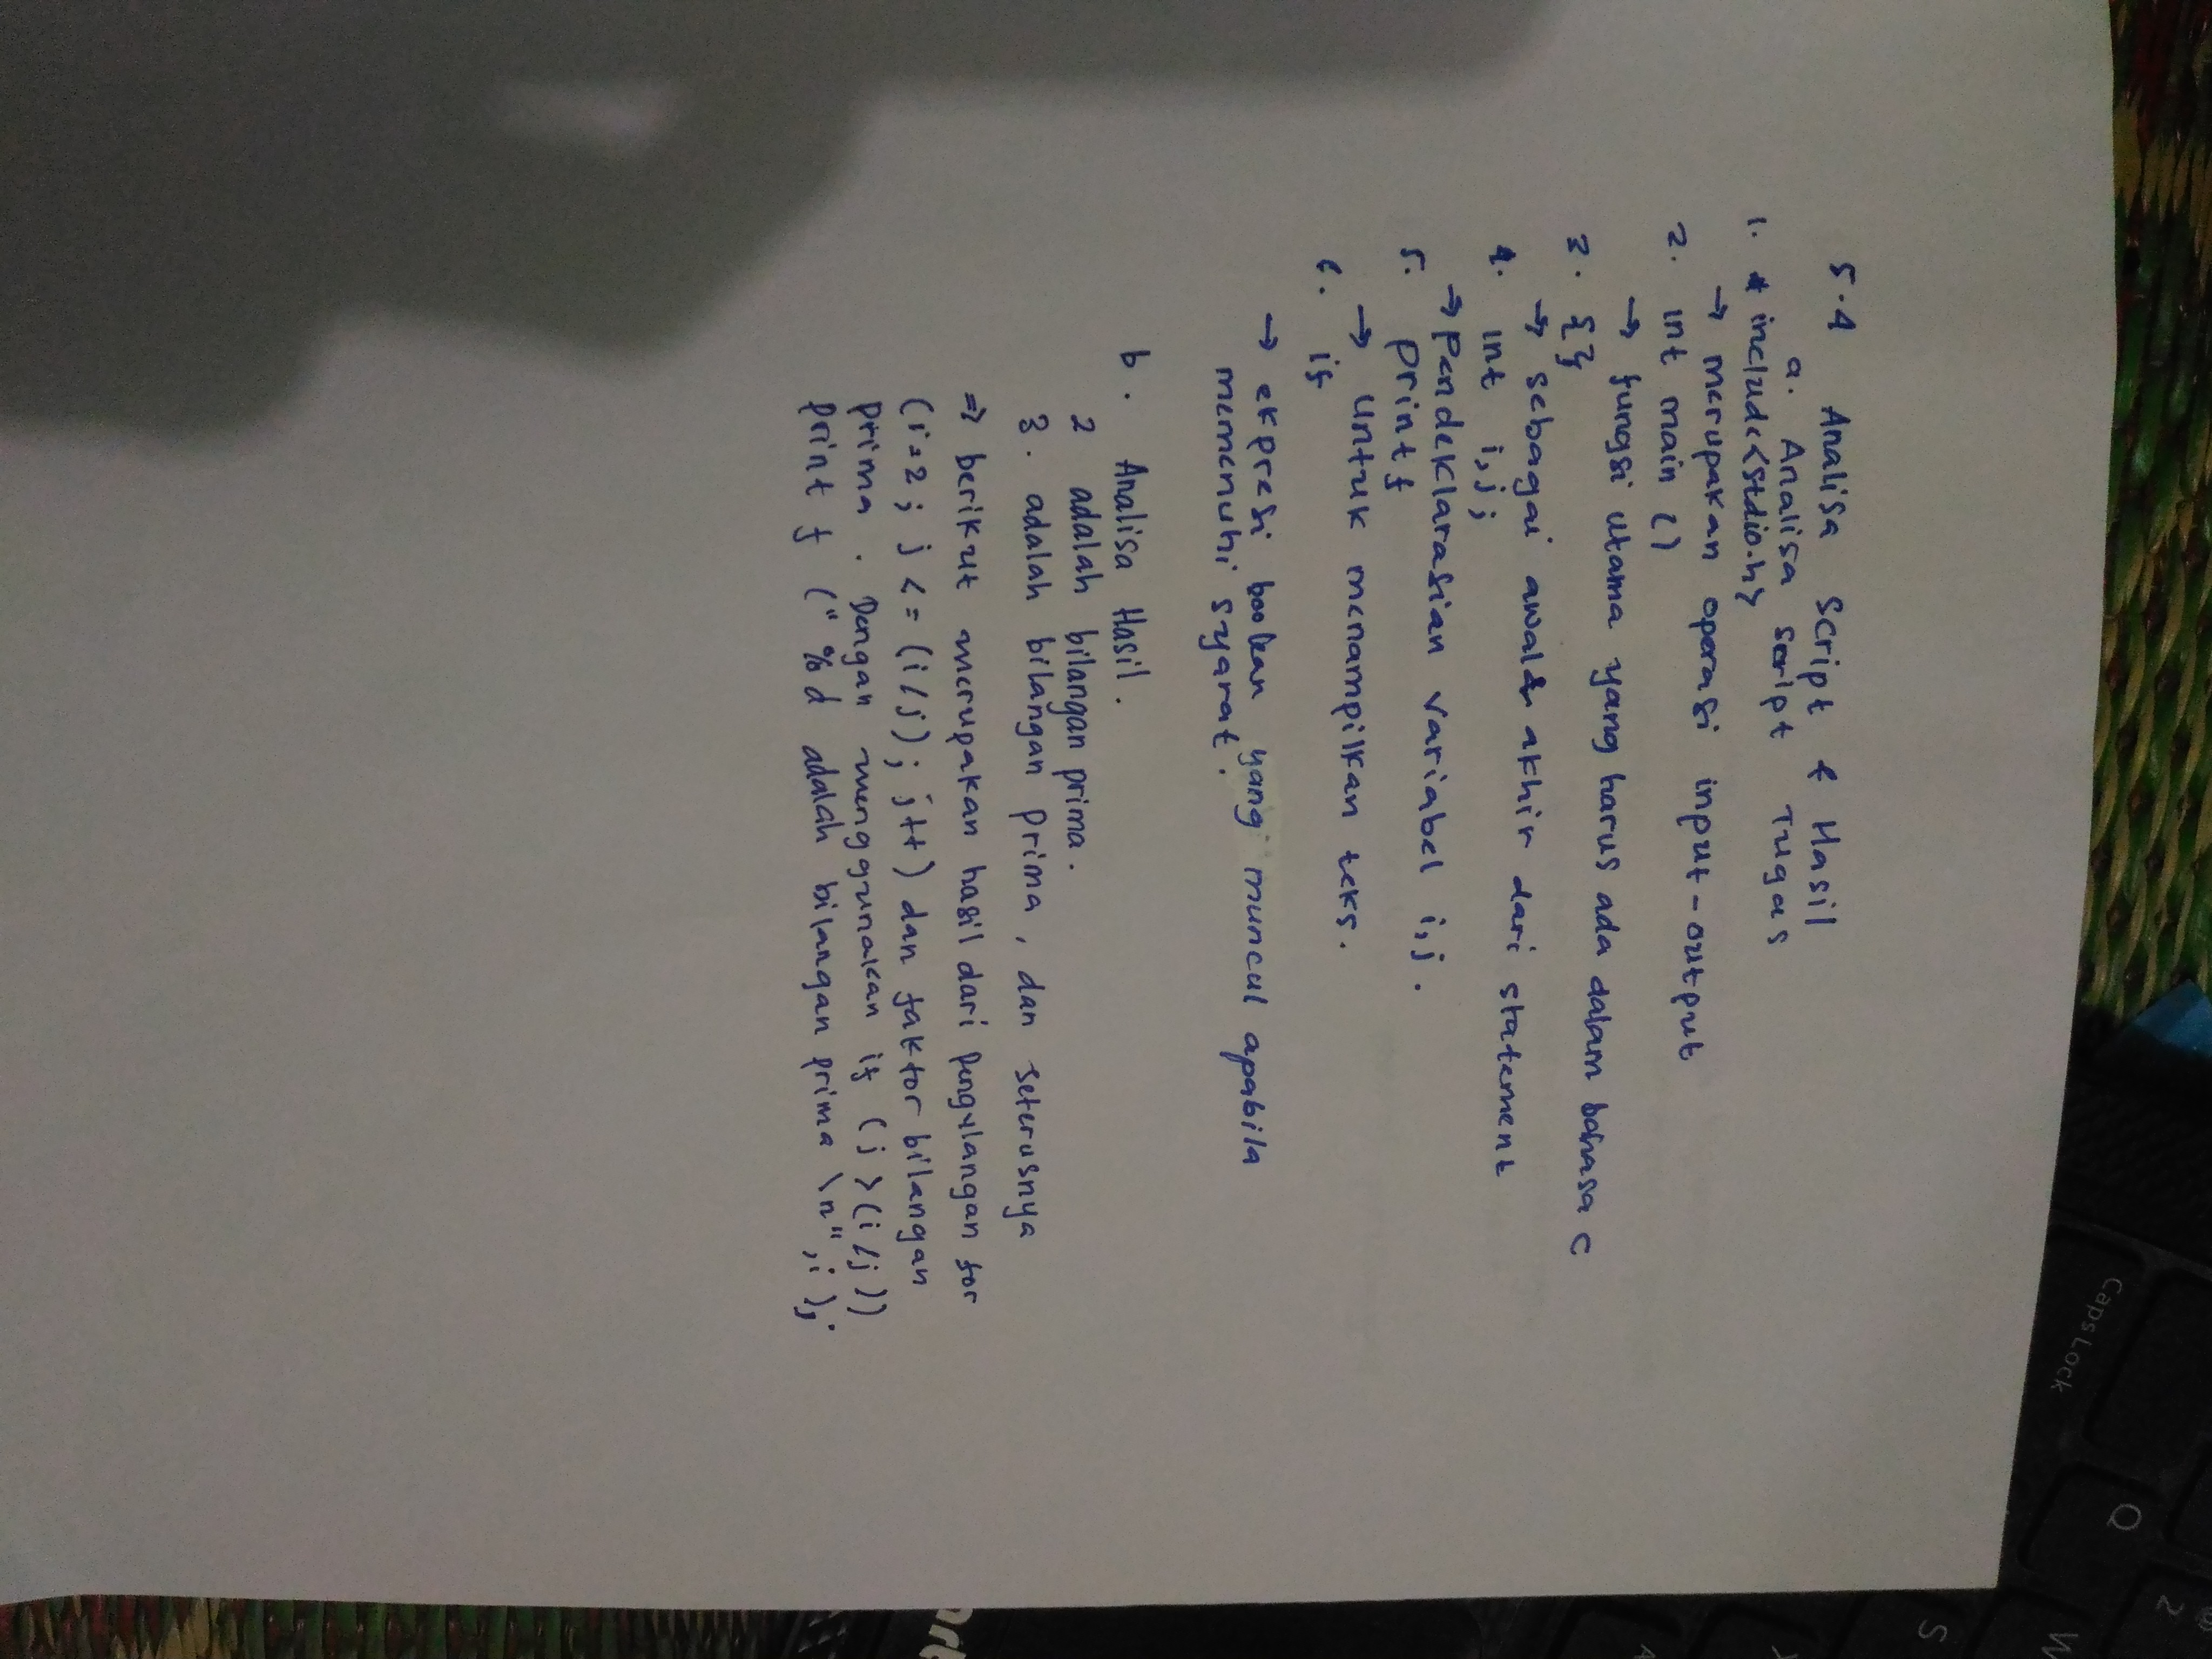 5.4 Analisa Script & Hasil
a. Analisa Script Tugas
1. # include<stdio.h>
→ merupakan operasi input-output
2. int main ()
→ fungsi utama yang harus ada dalam bahasa C
3. {}
→ sebagai awal & akhir dari statement
4. int i,j;
→ Pendeklarasian variabel i,j.
5. Printf
→ Untuk menampilkan teks.
6. if
→ ekpresi boolean yang muncul apabila
memenuhi syarat.
b. Analisa Hasil.
2 adalah bilangan prima.
3. adalah bilangan prima, dan seterusnya
⇒ berikut merupakan hasil dari pengulangan for
(i=2; j <= (i/j); j++) dan faktor bilangan
prima. Dengan menggunakan if (j >(i/j))
print f ("%d adalah bilangan prima \n",i);
CapsLock
Q
2
W
S
A